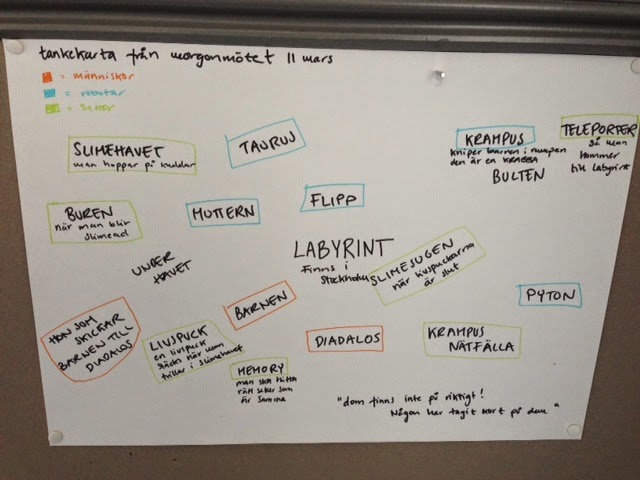 tankekarta från morgonmötet 11 mars
= människor
= robotar
= saker
SLIMEHAVET
man hoppar på kuddar
TAURUS
KRAMPUS
kniper barnen i rumpan
den är en KRABBA
BULTEN
TELEPORTER
så man
kommer
till labyrint
BUREN
när man blir
slimead
MUTTERN
FLIPP
UNDER
HAVET
LABYRINT
Finns i
Stockholm
SLIMESUGEN
när livspuckarna
är slut
PYTON
HON SOM
SKICKAR
BARNEN TILL
DIADALOS
LIVSPUCK
en livspuck
släcks när man
trillar i slimehavet
BARNEN
DIADALOS
KRAMPUS
NÄTFÄLLA
MEMORY
man ska hitta
rätt saker som
är samma
"dom finns inte på riktigt!
Någon har tagit kort på dem"